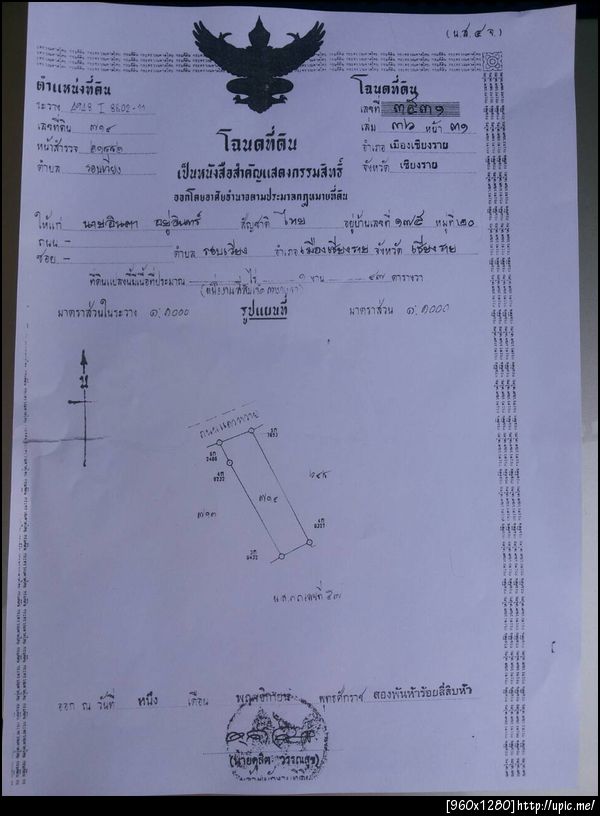 (น.ส. ๔ จ.)
ตำแหน่งที่ดิน
ระวาง 4948 I 8602-11
เลขที่ดิน ๗๑๔
หน้าสำรวจ
ตำบล รอบเวียง
โฉนดที่ดิน
เลขที่ ๓๕๓๑
เล่ม ๓๖ หน้า ๓๑
อำเภอ เมืองเชียงราย
จังหวัด เชียงราย
โฉนดที่ดิน
เป็นหนังสือสำคัญแสดงกรรมสิทธิ์
ออกโดยอาศัยอำนาจตามประมวลกฎหมายที่ดิน
ให้แก่ นายอินตา อยู่อินทร์ สัญชาติ ไทย อยู่บ้านเลขที่ ๑๗๕ หมู่ที่ ๒๐
ถนน -
ซอย - ตำบล รอบเวียง อำเภอ เมืองเชียงราย จังหวัด เชียงราย
ที่ดินแปลงนี้มีเนื้อที่ประมาณ - ไร่ ๑ งาน ๔๗ ตารางวา
(หนึ่งงานสี่สิบเจ็ดตารางวา)
มาตราส่วนในระวาง ๑:๑๐๐๐ รูปแผนที่ มาตราส่วน ๑:๑๐๐๐
น
๒๔๕
๗๑๔
๗๑๓
ออก ณ วันที่ หนึ่ง เดือน พฤศจิกายน พุทธศักราช สองพันห้าร้อยสี่สิบห้า
(นายดุสิต วรรณสุข)
[960x1280] http://upic.me/